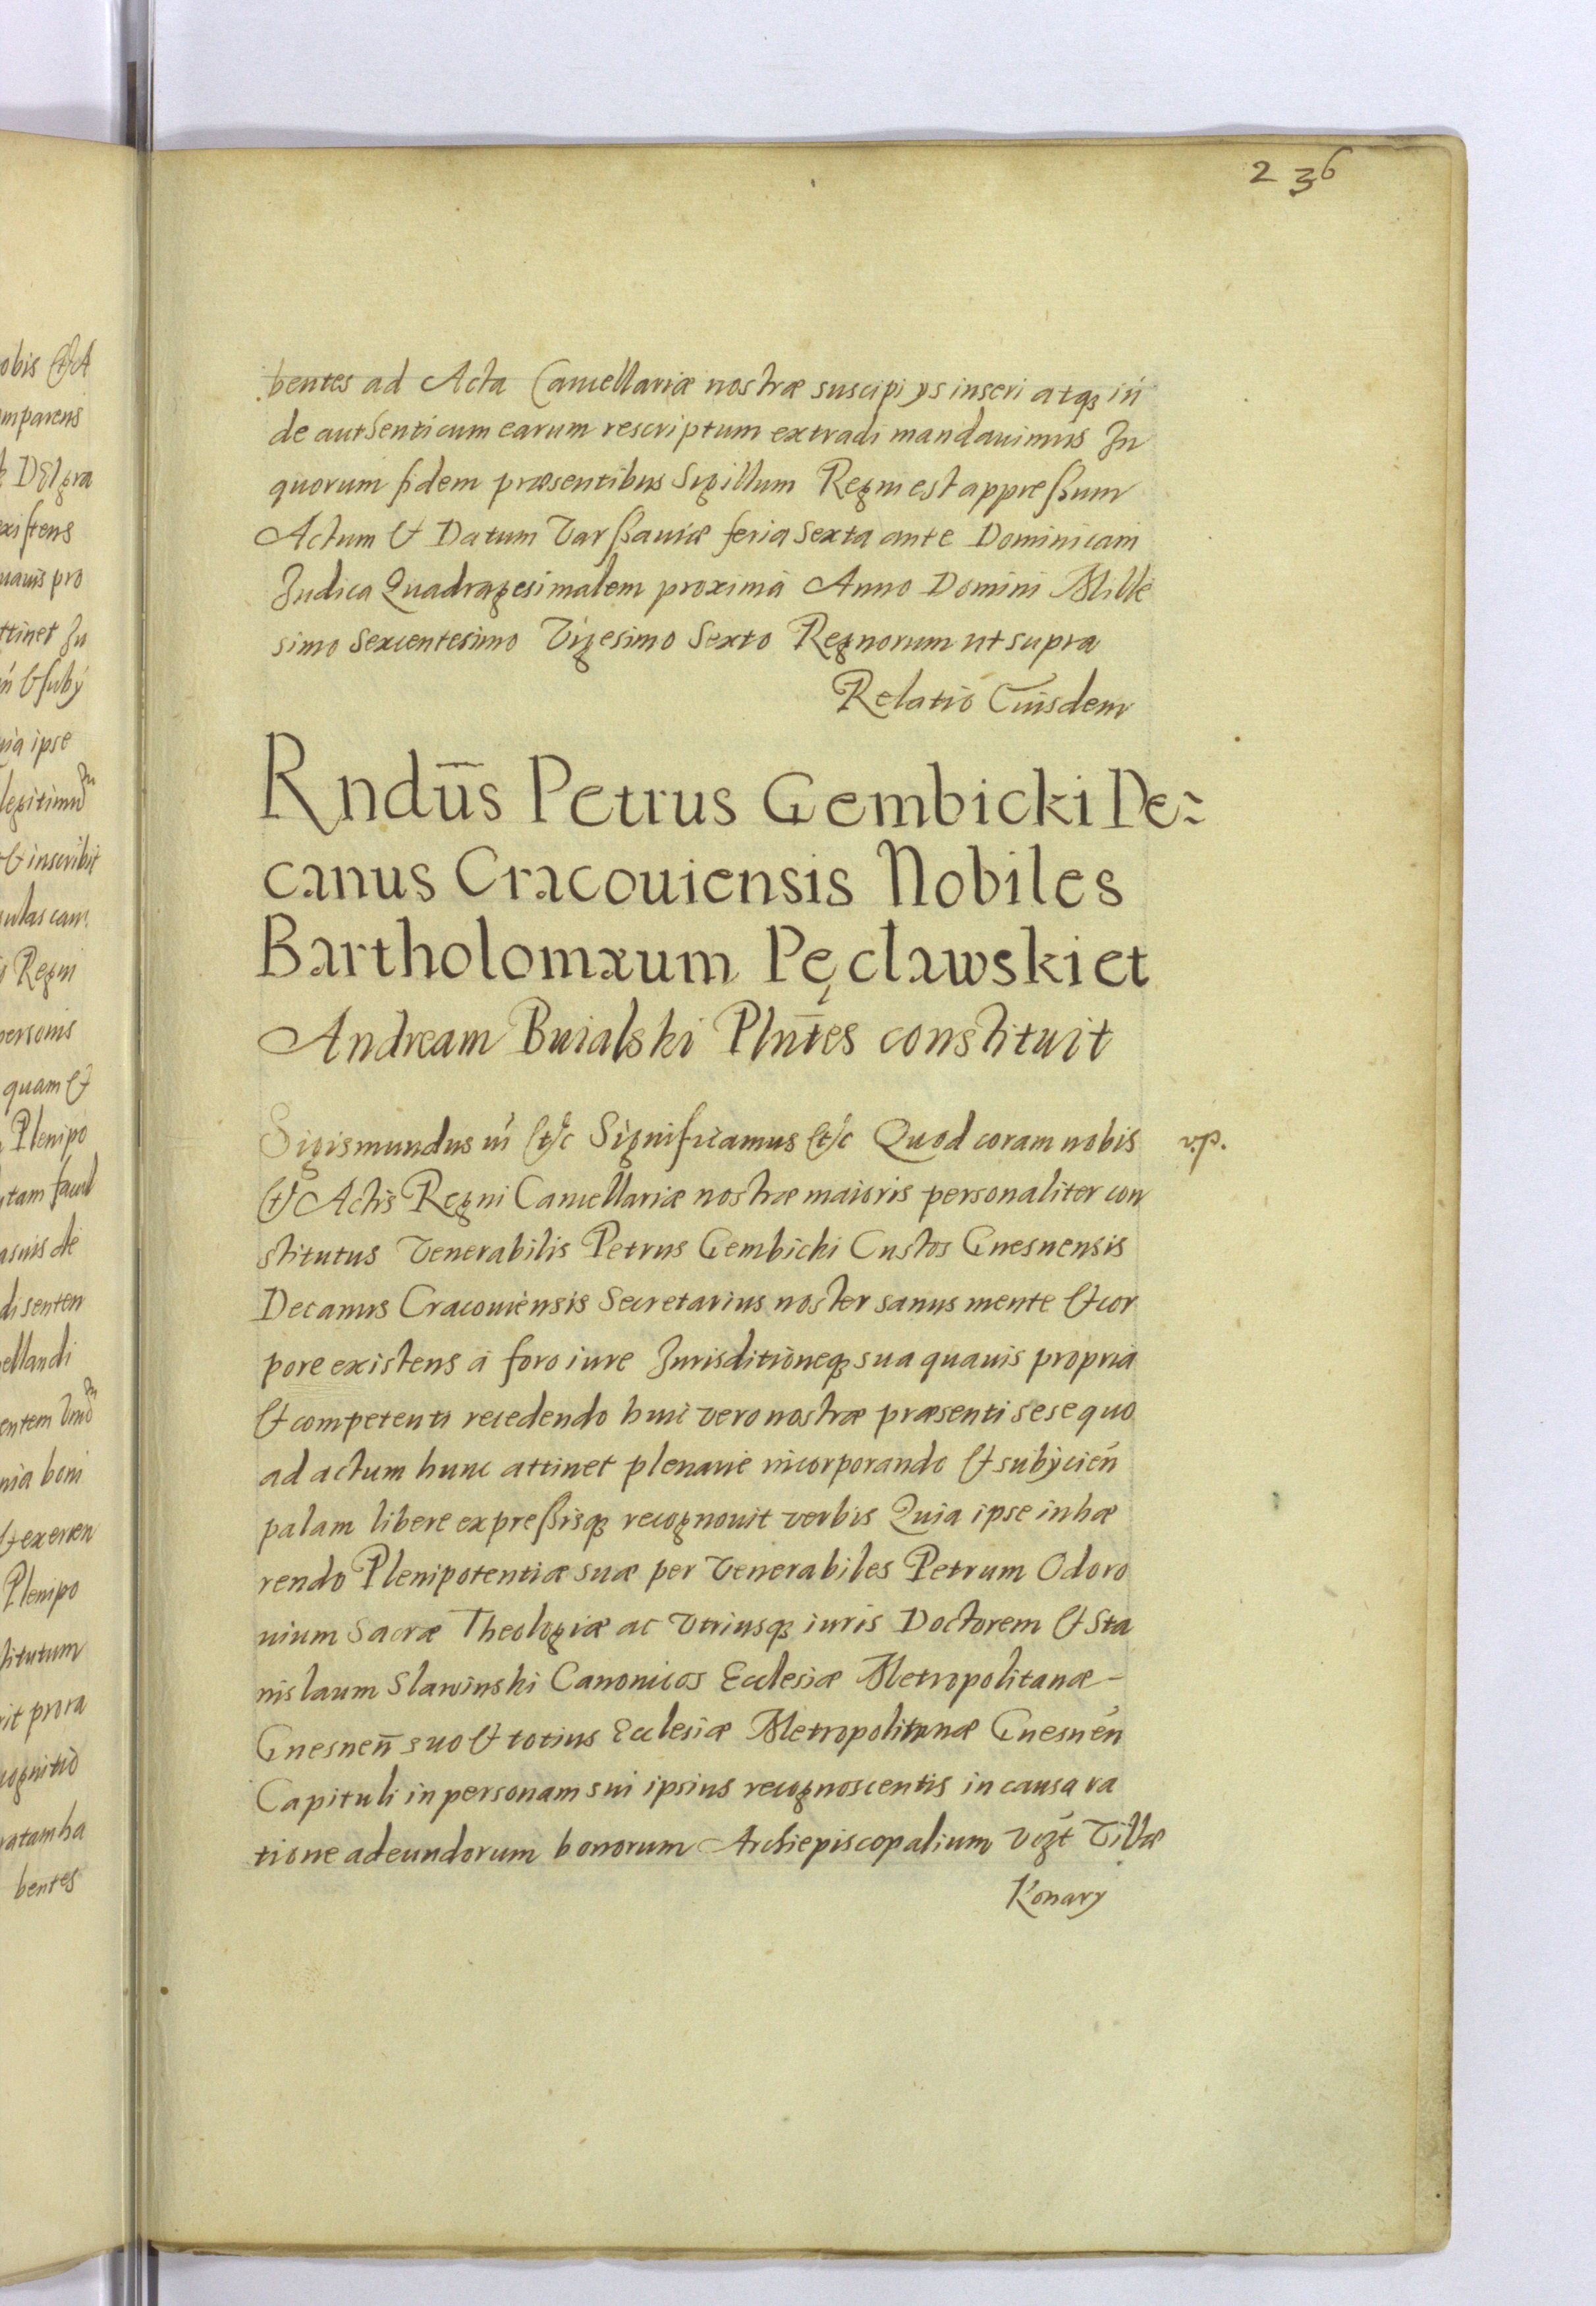 236
bentes ad Acta Cancellariæ nostræ suscipi ÿs inseri atq3 in
de authenticum earum rescriptum extradi mandauimus In
quorum fidem præsentibus Sigillum Regni est appreßum
Actum & Datum Varßauiæ feria Sexta ante Dominicam
Iudica Quadragesimalem proximà Anno Domini Mille
simo Sexcentesimo Vigesimo Sexto Regnorum ut supra
Relatio Eiusdem
Rndūs Petrus Gembicki De-
canus Cracouiensis Nobiles
Bartholomæum Pęclawski et
Andream Buialski Plnt̄es constituit
Sigismundus III &c Significamus &c Quod coram nobis
& Actis Regni Cancellariæ nostræ maioris personaliter con
stitutus Venerabilis Petrus Gembicki Custos Gnesnensis
Decanus Cracouiensis Secretarius noster sanus mente & cor
pore existens à foro iure Iurisditioneq3 sua quauis propria
& competenti recedendo huic vero nostræ præsenti sese quo
ad actum hunc attinet plenarie incorporando & subÿcień
palam libere expreßisq3 recognouit verbis Quia ipse inhæ
rendo Plenipotentiæ suæ per Venerabiles Petrum Odoro
uium Sacræ Theologiæ ac Vtriusq3 iuris Doctorem & Sta
nislaum Slawinski Canonicos Ecclesiæ Metropolitanæ -
Gnesnen̄ suo & totius Ecclesiæ Metropolitanæ Gnesneń
Capituli in personam sui ipsius recognoscentis in causa ra
tione adeundorum bonorum Archiepiscopalium vigt́ Villæ
Konary